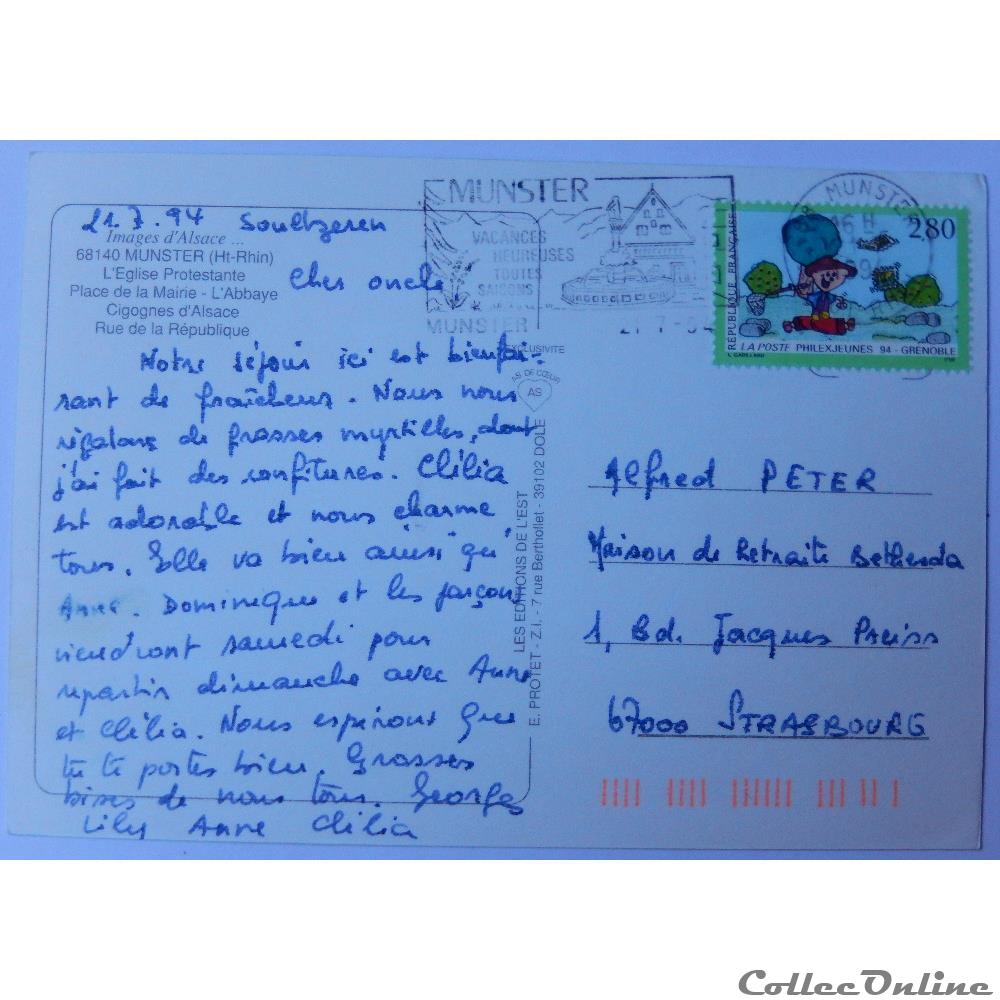 21.7.94 Soultzeren
Images d'Alsace ...
68140 MUNSTER (Ht-Rhin)
L'Eglise Protestante
Place de la Mairie - L'Abbaye
Cigognes d'Alsace
Rue de la République
Cher oncle,
Notre séjour ici est bienfai-
sant de fraîcheur. Nous nous
régalons de grosses myrtilles, dont
j'ai fait des confitures. Clélia
est adorable et nous charme
tous. Elle va bien ainsi qu'
Anne. Dominique et les garçons
viendront samedi pour
repartir dimanche avec Anne
et Clélia. Nous espérons que
tu te portes bien. Grosses
bises de nous tous. Georges
Lily Anne Clélia
EXCLUSIVITE
AS DE CŒUR
AS
LES EDITIONS DE L'EST
E. PROTET - Z.I. - 7 rue Berthollet - 39102 DOLE
MUNSTER
VACANCES
HEUREUSES
TOUTES
SAISONS
MUNSTER
21-7-94
MUNSTER
16 H
2,80
REPUBLIQUE FRANÇAISE
LA POSTE PHILEXJEUNES 94 - GRENOBLE
Alfred PETER
Maison de Retraite Bethesda
1, Bd. Jacques Preiss
67000 STRASBOURG
CollecOnline